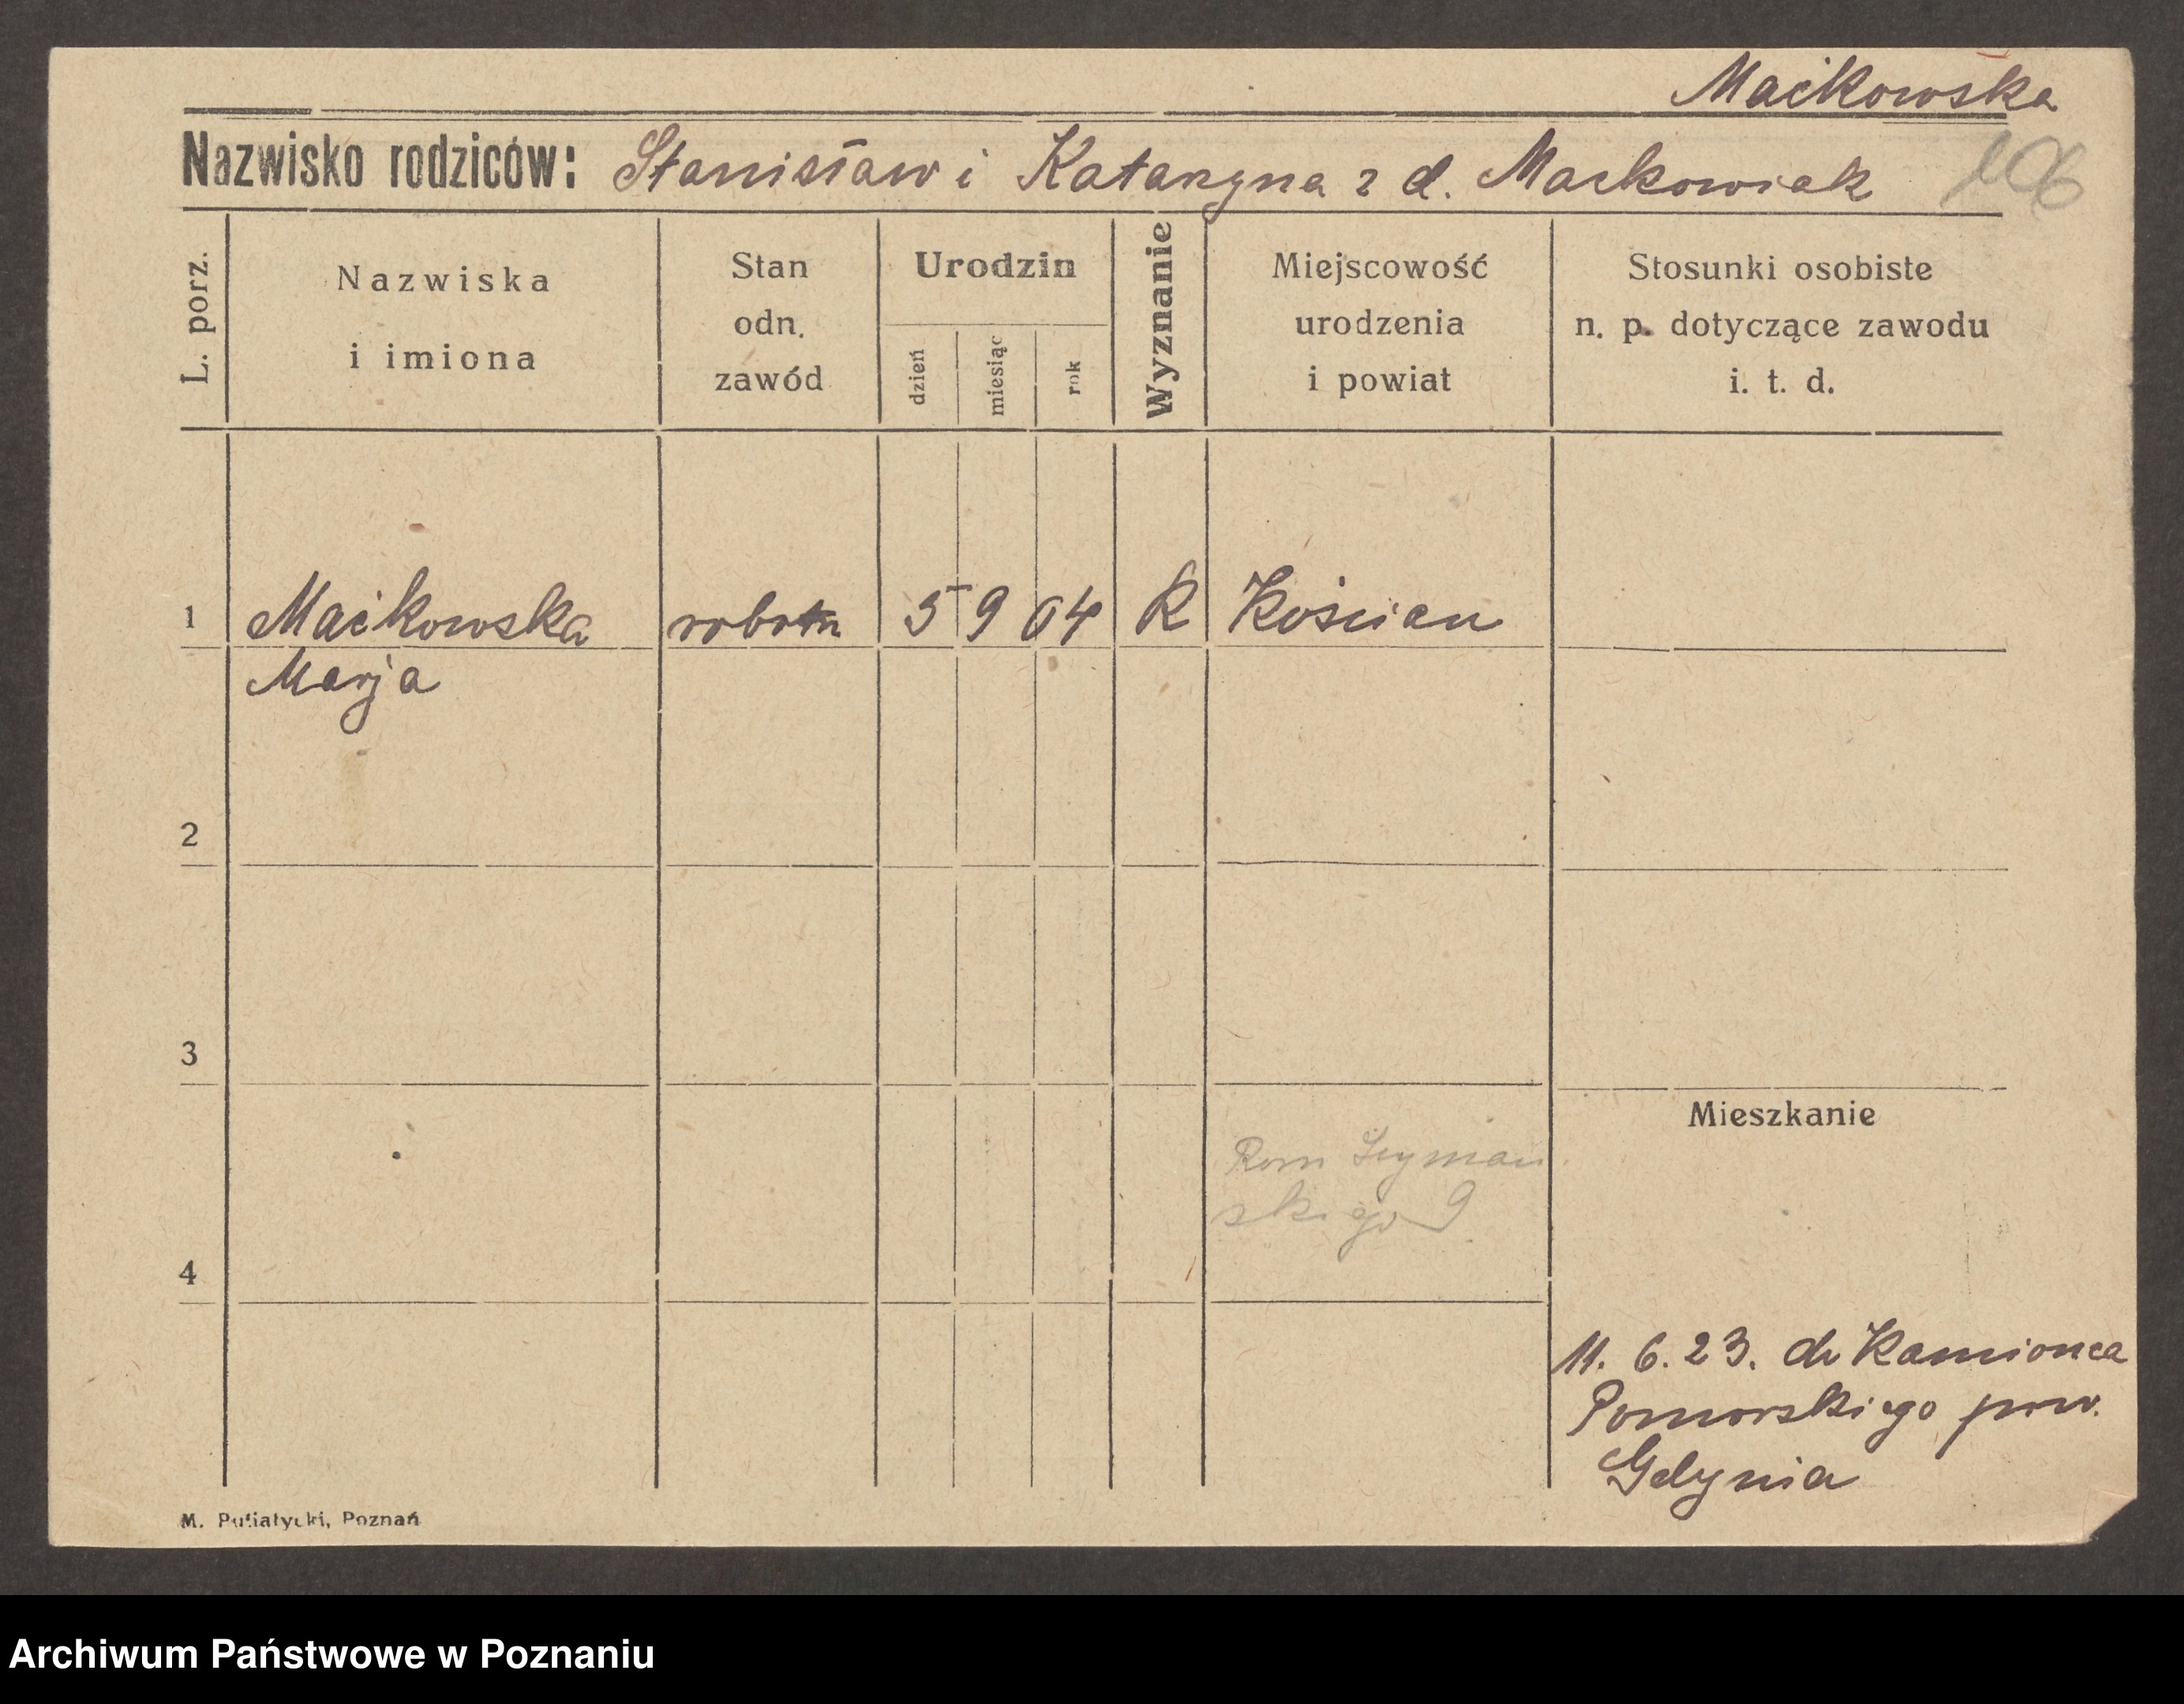 Maćkowska
Nazwisko rodziców: Stanisław i Katarzyna z d. Maćkowiak
106
L. porz.
Nazwiska
i imiona
Stan
odn.
zawód
Urodzin
dzień
miesiąc
rok
Wyznanie
Miejscowość
urodzenia
i powiat
Stosunki osobiste
n. p. dotyczące zawodu
i. t. d.
1 Maćkowska robotn 5 9 04 R Kościan
Marja
2
3
Mieszkanie
Rom Szymań
skiego 9
4
11. 6. 23. do Kamionca
Pomorskiego pow.
Gdynia
M. Putiatycki, Poznań
Archiwum Państwowe w Poznaniu